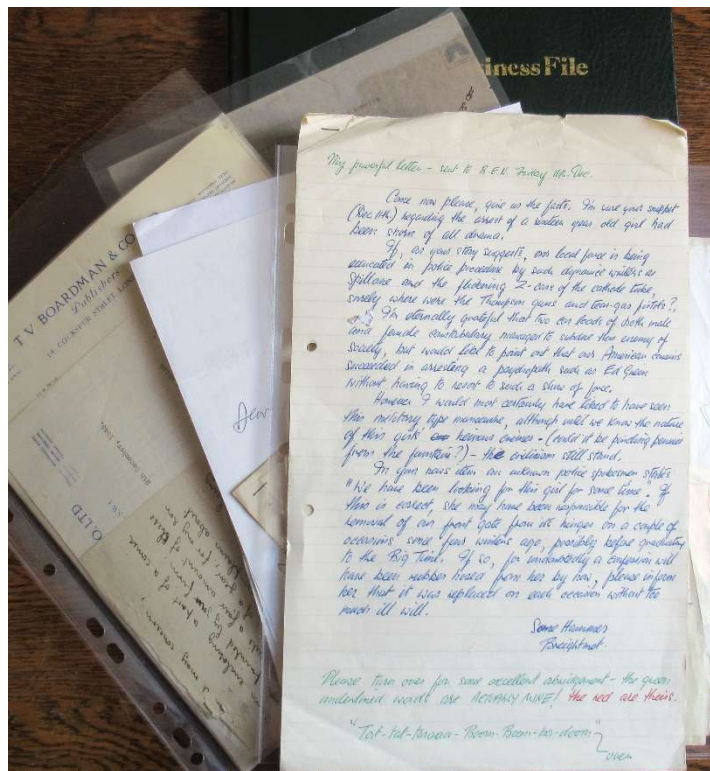 inessFile
T.V. BOARDMAN & CO
Publishers
14, COCKSPUR STREET, LON
O. LTD
Dear
My powerful letter - sent to B.E.N. Friday Dec.
Come now please, give us the facts. I'm sure your snippet
(Dec 11th) regarding the arrest of a sixteen year old girl had
been shorn of all drama.
If, as your story suggests, our local force is being
educated in police procedure by such dynamic writers as
Spillane and the flickering Z-cars of the cathode tube,
surely where were the Thompson guns and tear-gas pistols?
I'm eternally grateful that two car loads of both male
and female constabulary managed to subdue this enemy of
society, but would like to point out that our American cousins
succeeded in arresting a psychopath such as Ed Green
without having to resort to such a show of force.
However I would most certainly have liked to have seen
this military type manoeuvre, although until we know the nature
of this girls' heinous crimes - (could it be pinching pennies
from the fountain?) - the criticism still stand.
In your news item an unknown police spokesman states
"We have been looking for this girl for some time." If
this is correct, she may have been responsible for the
removal of our front gate from its hinges on a couple of
occasions some few winters ago, possibly before graduating
to the Big Time. If so, for undoubtedly a confession will
have been rubber hosed from her by now, please inform
her that it was replaced on each occasion without too
much ill will.
Some Hammer
Breightmet.
Please turn over for some excellent abridgement - the green
underlined words are ACTUALLY MINE! the red are theirs.
over